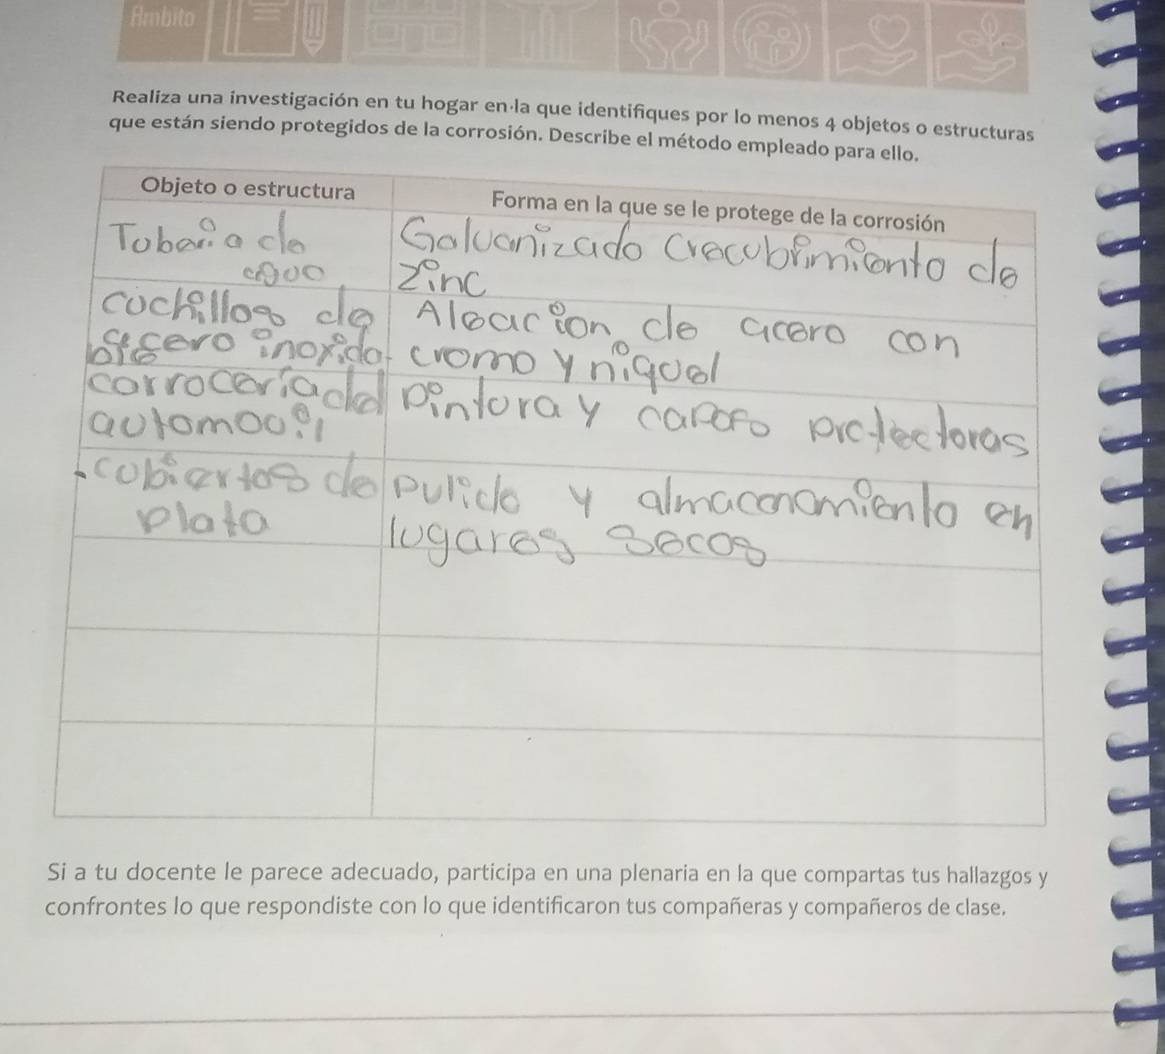 Ámbito
Realiza una investigación en tu hogar en la que identifiques por lo menos 4 objetos o estructuras
que están siendo protegidos de la corrosión. Describe el método empleado para ello.
Objeto o estructura
Forma en la que se le protege de la corrosión
Toberia de
agua
Galvanizado (recubrimiento de
zinc
cochillos de
acero inoxida
Aleacion de acero con
cromo y niquel
carroceria del
automovil
pintora y caparo protectoras
cobiertos de
plata
pulido y almacenamiento en
lugares secos
Si a tu docente le parece adecuado, participa en una plenaria en la que compartas tus hallazgos y
confrontes lo que respondiste con lo que identificaron tus compañeras y compañeros de clase.